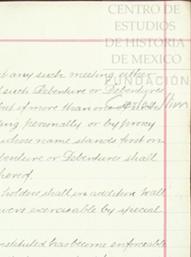 CENTRO DE
ESTUDIOS
DE HISTORIA
DE MEXICO
FUNDACIÓN
at any such meeting either
such Debenture or Debentures
but if more than one
ing personally or by proxy
whose name stands first on
benture or Debentures shall
hereof.
holders shall in addition to all
were exercisable by special
constituted has become enforceable